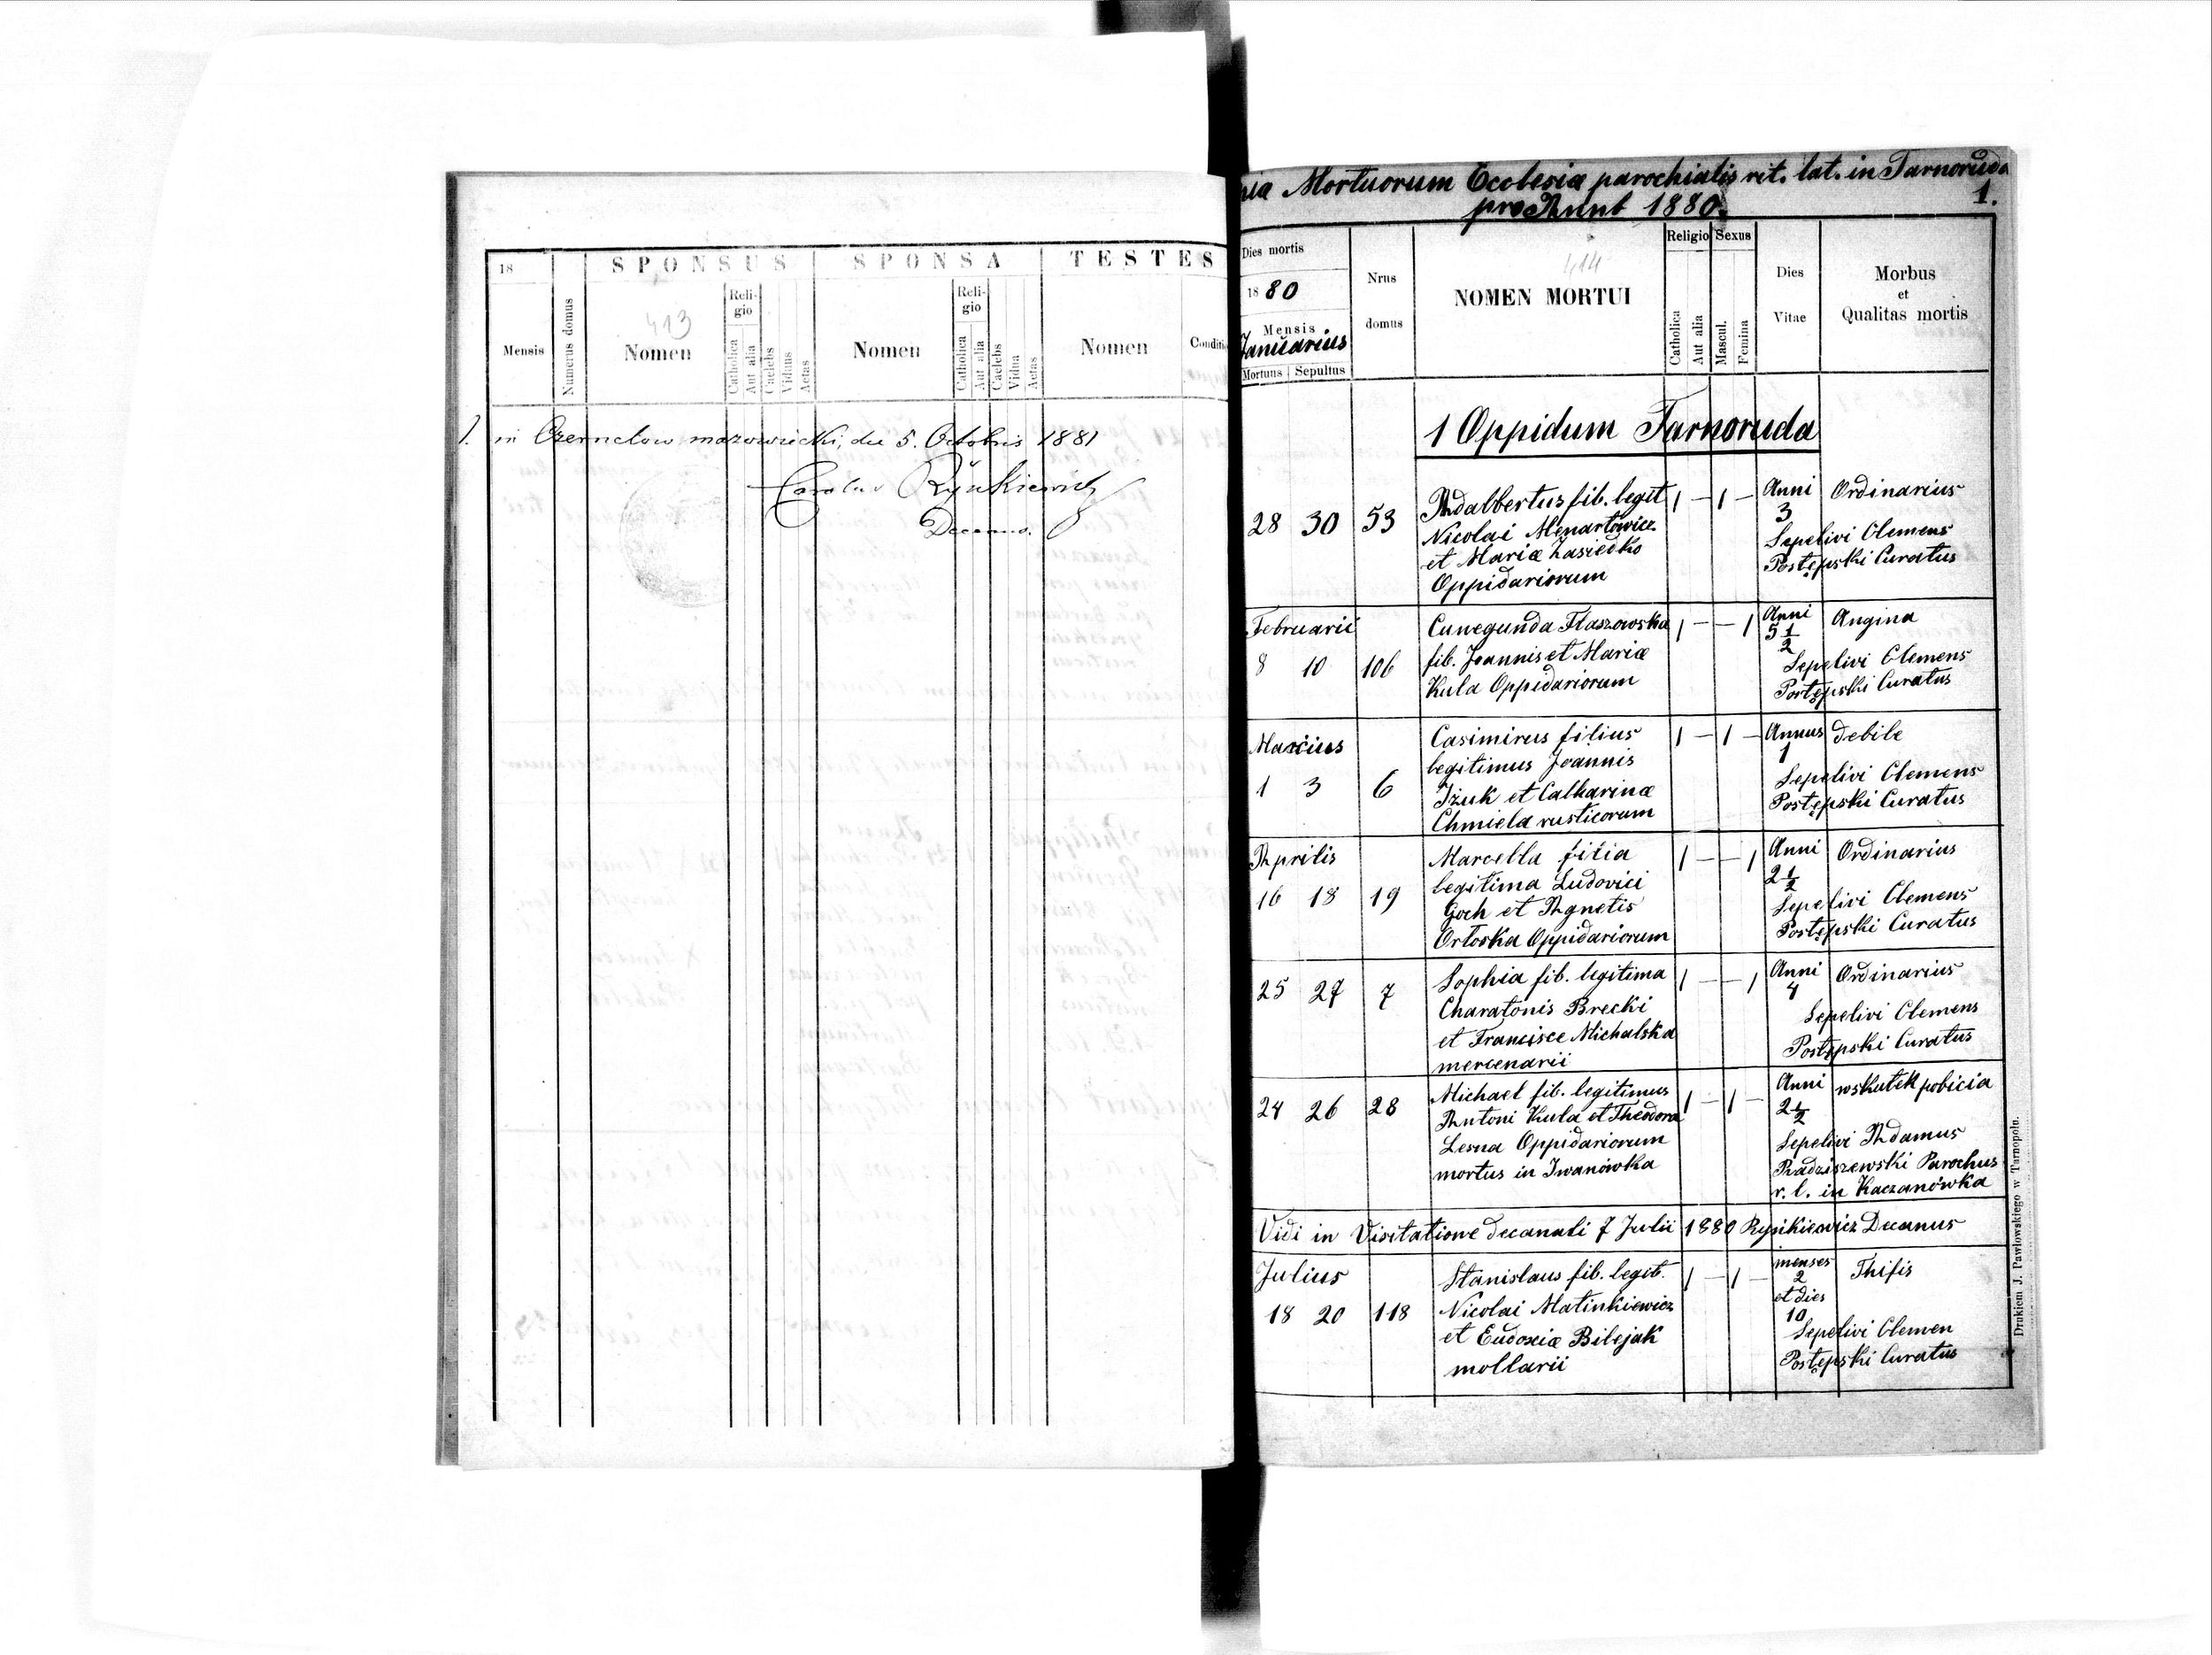 18
SPONSUS SPONSA TESTES
Mensis
Numerus domus
413
Nomen
Reli-
gio
Catholica
Aut alia
Caelebs
Viduus
Aetas
Nomen
Reli-
gio
Catholica
Aut alia
Caelebs
Vidua
Aetas
Nomen
1. in Czernelow mazowiecki, die 5. Octobris 1881
Carolus Rynkiewicz
Decanus.
Mortuorum Ecclesiæ parochialis rit. lat. in Tarnoruda
pro Anno 1880.
1.
Dies mortis
1880
Mensis
Januarius
Mortuus Sepultus
Nrus
domus
414
NOMEN MORTUI
Religio
Catholica
Aut alia
Sexus
Mascul.
Femina
Dies
Vitae
Morbus
et
Qualitas mortis
1 Oppidum Tarnoruda
28 30 53
Adalbertus fil. legit
Nicolai Menartowicz
et Mariæ Zasiedko
Oppidariorum
1 — 1 —
Anni
3
Ordinarius
Sepelivi Clemens
Postępski Curatus
Februarii
8 10 106
Cunegunda Flaszowska
fil. Joannis et Mariæ
Kula Oppidariorum
1 — — 1
Anni
5 1/2
Angina
Sepelivi Clemens
Postępski Curatus
Marcius
1 3 6
Casimirus filius
legitimus Joannis
Iżuk et Catharinæ
Chmiela rusticorum
1 — 1 —
Annus
1
debile
Sepelivi Clemens
Postępski Curatus
Aprilis
16 18 19
Marcella filia
legitima Ludovici
Goch et Agnetis
Orłoska Oppidariorum
1 — — 1
Anni
2 1/2
Ordinarius
Sepelivi Clemens
Postępski Curatus
25 27 7
Sophia fil. legitima
Charatonis Brecki
et Francisce Michalska
mercenarii
1 — — 1
Anni
4
Ordinarius
Sepelivi Clemens
Postępski Curatus
24 26 28
Michael fil. legitimus
Antoni Kula et Theodora
Lesna Oppidariorum
mortus in Iwanówka
1 — 1 —
Anni
2 1/2
wskutek pobicia
Sepelivi Adamus
Radziszewski Parochus
r. l. in Kaczanówka
Vidi in Visitatione decanali 7 Julii 1880 Rynkiewicz Decanus
Julius
18 20 118
Stanislaus fil. legit.
Nicolai Matinkiewicz
et Eudoxiæ Bilejak
mollarii
1 — 1 —
menses
2
et dies
10
Thifis
Sepelivi Clemen
Postępski Curatus
Drukiem J. Pawłowskiego w Tarnopolu.